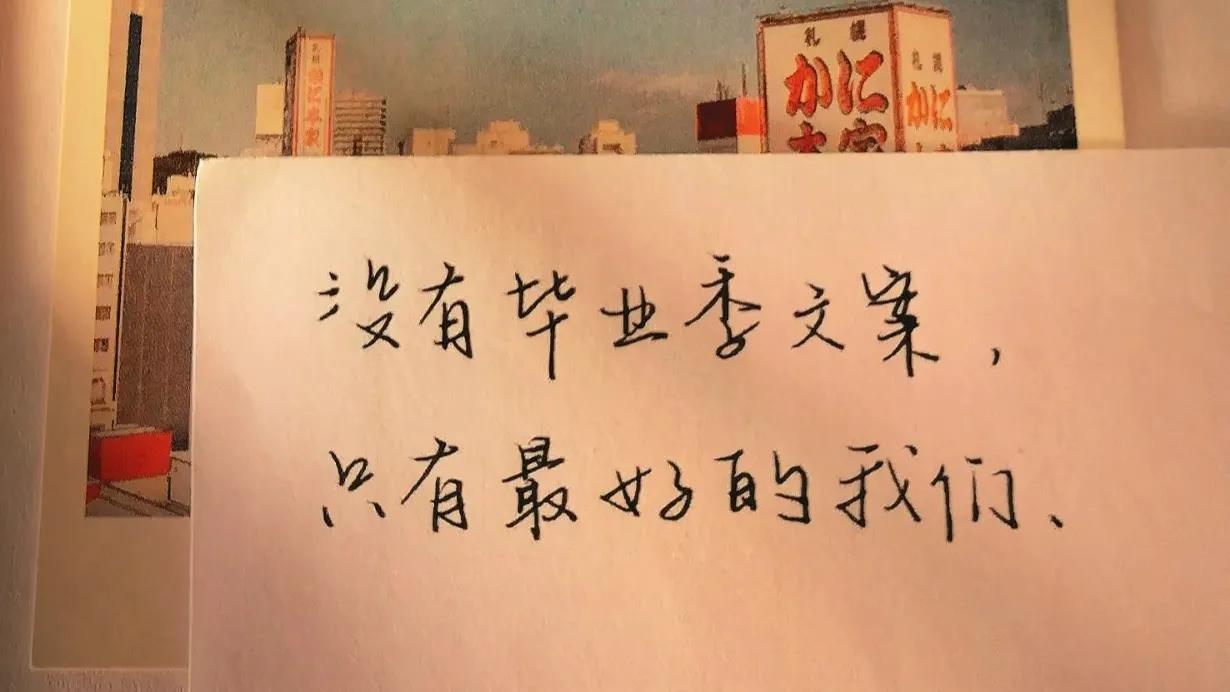 札幌
かに本家
札幌
かに
本家
札幌
かに
没有毕业季文案，
只有最好的我们、